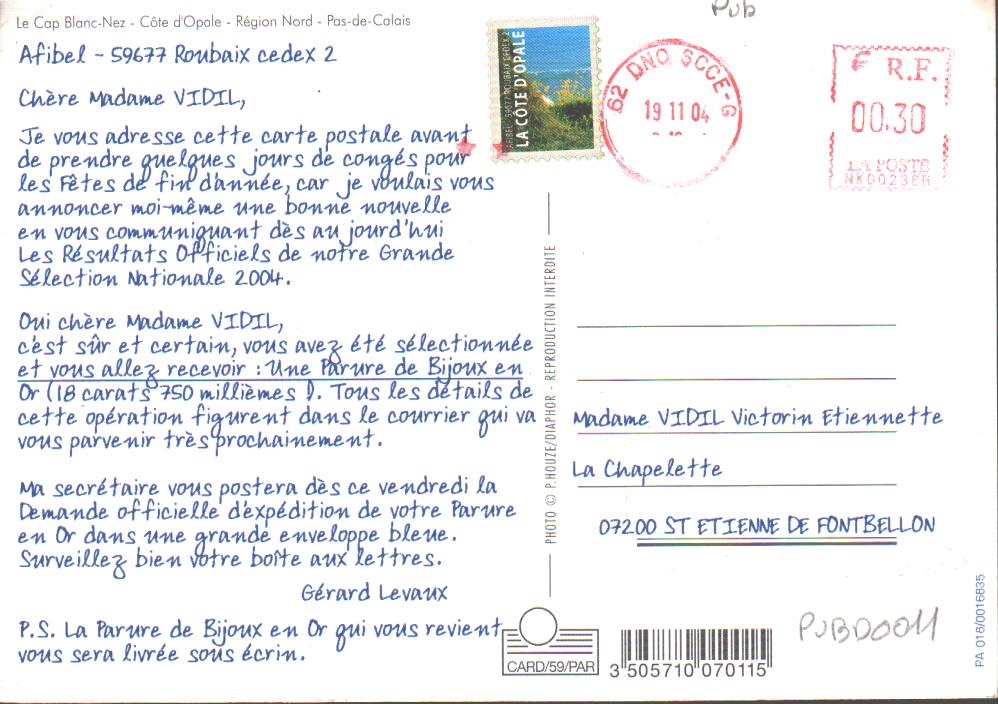 Le Cap Blanc-Nez - Côte d'Opale - Région Nord - Pas-de-Calais
Afibel - 59677 Roubaix cedex 2
Chère Madame VIDIL,
Je vous adresse cette carte postale avant
de prendre quelques jours de congés pour
les Fêtes de fin d'année, car je voulais vous
annoncer moi-même une bonne nouvelle
en vous communiquant dès aujourd'hui
Les Résultats Officiels de notre Grande
Sélection Nationale 2004.
Oui chère Madame VIDIL,
c'est sûr et certain, vous avez été sélectionnée
et vous allez recevoir : Une Parure de Bijoux en
Or (18 carats 750 millièmes !). Tous les détails de
cette opération figurent dans le courrier qui va
vous parvenir très prochainement.
Ma secrétaire vous postera dès ce vendredi la
Demande officielle d'expédition de votre Parure
en Or dans une grande enveloppe bleue.
Surveillez bien votre boîte aux lettres.
Gérard Levaux
P.S. La Parure de Bijoux en Or qui vous revient
vous sera livrée sous écrin.
Pub
AFIBEL 59677 ROUBAIX CEDEX 2
LA CÔTE D'OPALE
62 DNO SCCE-G
19 11 04
R.F.
00.30
LA POSTE
PHOTO © P.HOUZE/DIAPHOR - REPRODUCTION INTERDITE
Madame VIDIL Victorin Etiennette
La Chapelette
07200 ST ETIENNE DE FONTBELLON
CARD/59/PAR
3 505710 070115
PUBD0011
PA 018/0016835